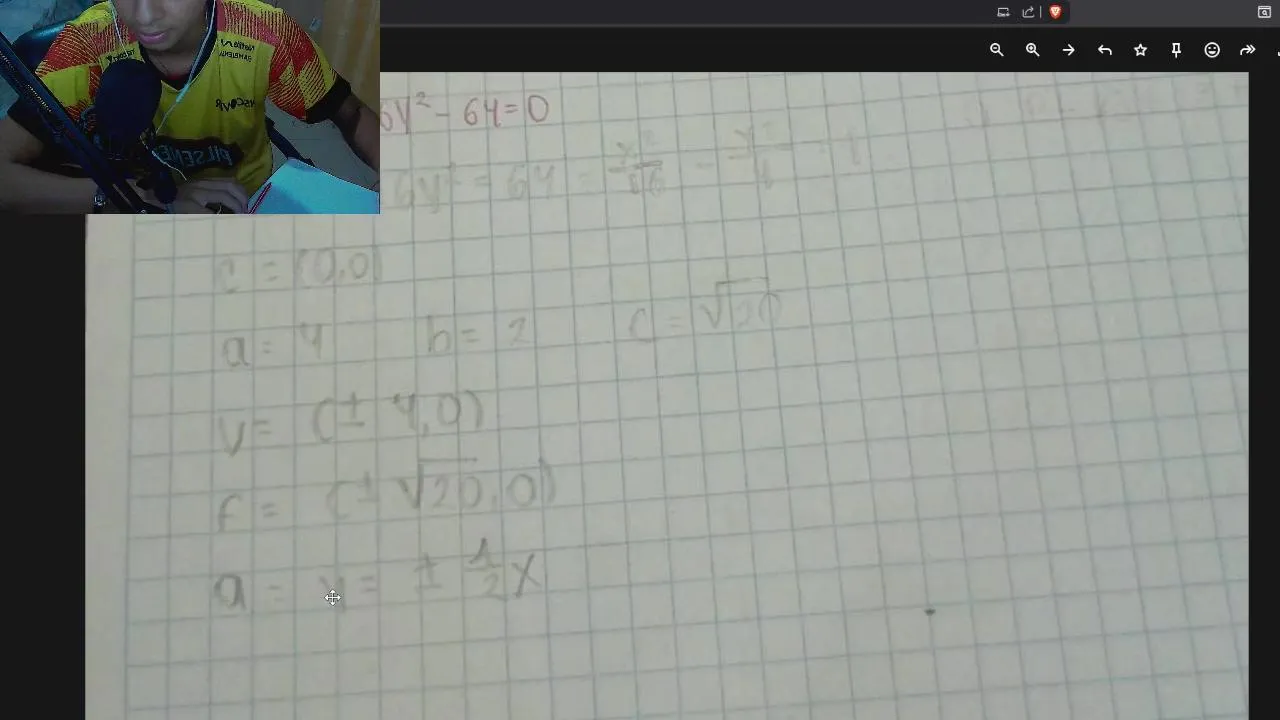 6y² - 64 = 0
6y² = 64 = x²/16 - y²/4 = 1
c = (0,0)
a = 4 b = 2 c = √20
V = (± 4,0)
F = (± √20,0)
a = y = ± 1/2 x
PILSENER